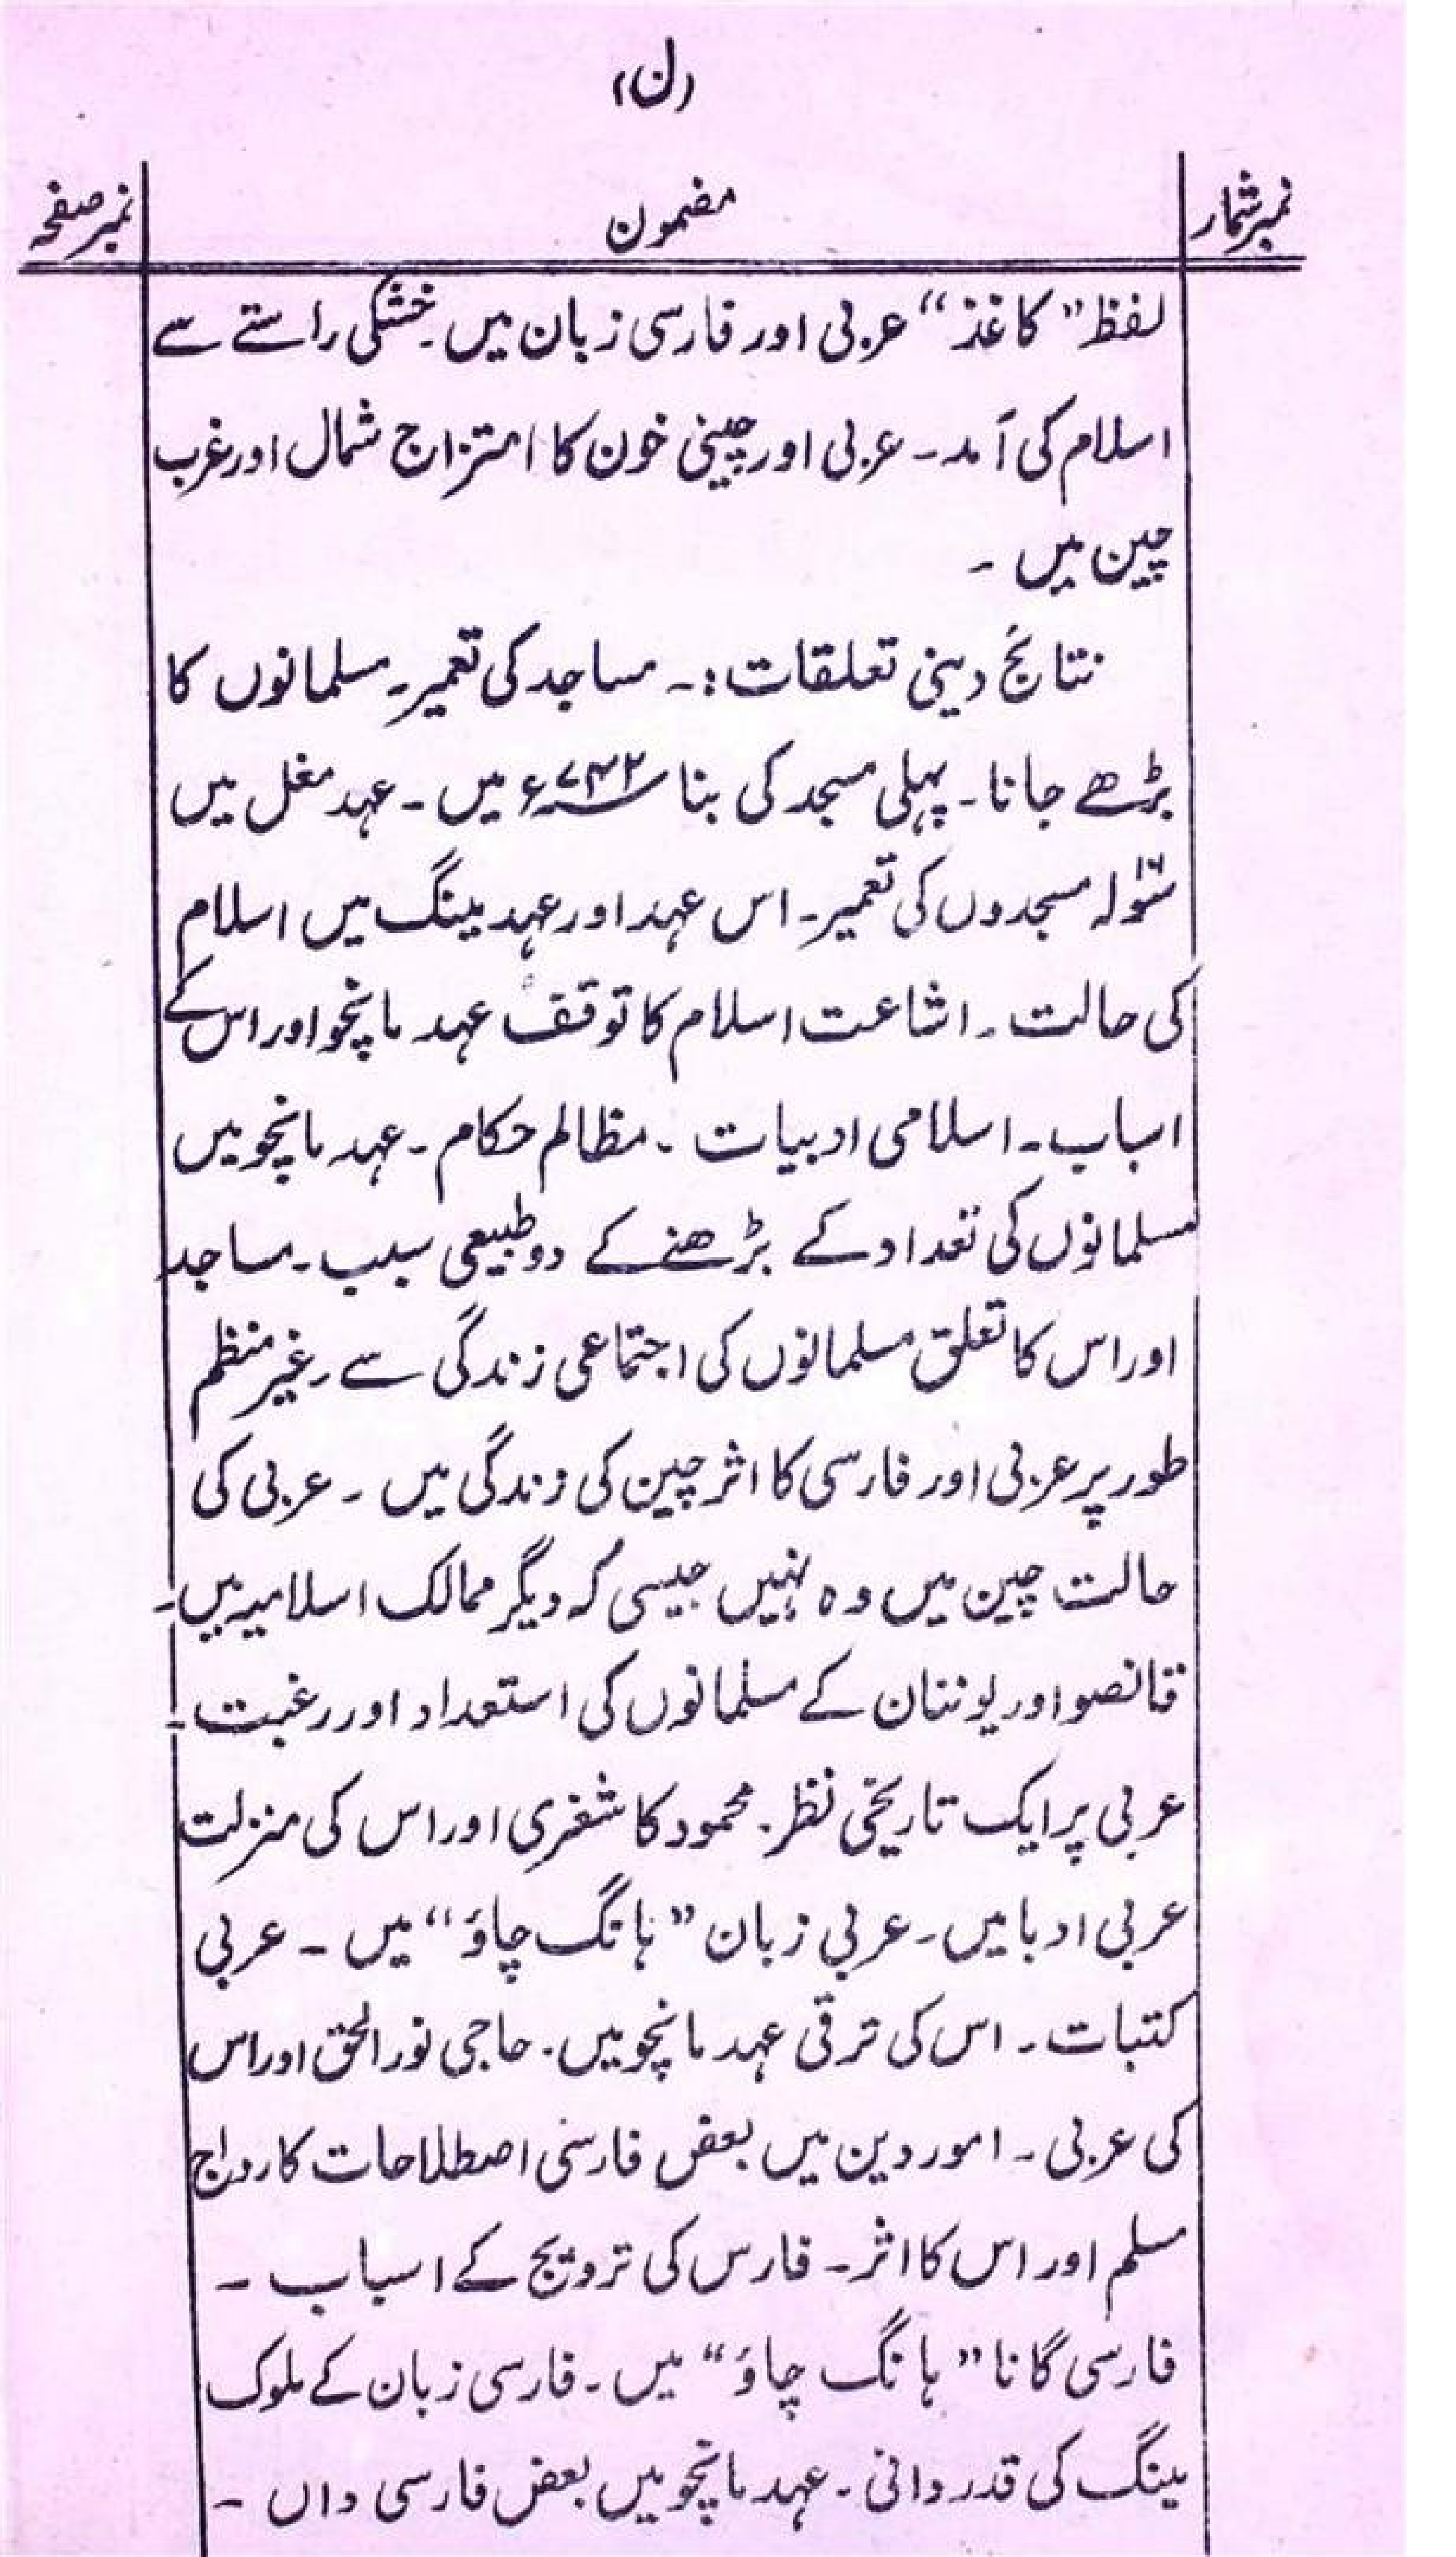 (ن)
نمبر شمار مضمون نمبر صفحہ
لفظ ”کاغذ“ عربی اور فارسی زبان میں۔ خشکی راستے سے
اسلام کی آمد۔ عربی اور چینی خون کا امتزاج شمال اور غرب
چین میں ۔
نتائج دینی تعلقات:۔ مساجد کی تعمیر۔ مسلمانوں کا
بڑھے جانا۔ پہلی مسجد کی بنا ۷۴۲ء میں۔ عہد مغل میں
سولہ مسجدوں کی تعمیر۔ اس عہد اور عہد مینگ میں اسلام
کی حالت۔ اشاعت اسلام کا توقف عہد مانچو اور اس کے
اسباب۔ اسلامی ادبیات ۔ مظالم حکام۔ عہد مانچو میں
مسلمانوں کی تعداد کے بڑھنے کے دو طبیعی سبب۔ مساجد
اور اس کا تعلق مسلمانوں کی اجتماعی زندگی سے۔ غیر منظم
طور پر عربی اور فارسی کا اثر چین کی زندگی میں ۔ عربی کی
حالت چین میں وہ نہیں جیسی کہ دیگر ممالک اسلامیہ میں۔
قانصو اور یوننان کے مسلمانوں کی استعداد اور رغبت۔
عربی پر ایک تاریخی نظر۔ محمود کاشغری اور اس کی منزلت
عربی ادبا میں۔ عربی زبان ”ہانگ چاؤ“ میں ۔ عربی
کتبات ۔ اس کی ترقی عہد مانچو میں۔ حاجی نور الحق اور اس
کی عربی ۔ امور دین میں بعض فارسی اصطلاحات کا رواج
مسلم اور اس کا اثر۔ فارس کی ترویج کے اسباب ۔
فارسی گانا ”ہانگ چاؤ“ میں ۔ فارسی زبان کے ملوک
مینگ کی قدر دانی ۔ عہد مانچو میں بعض فارسی داں ۔